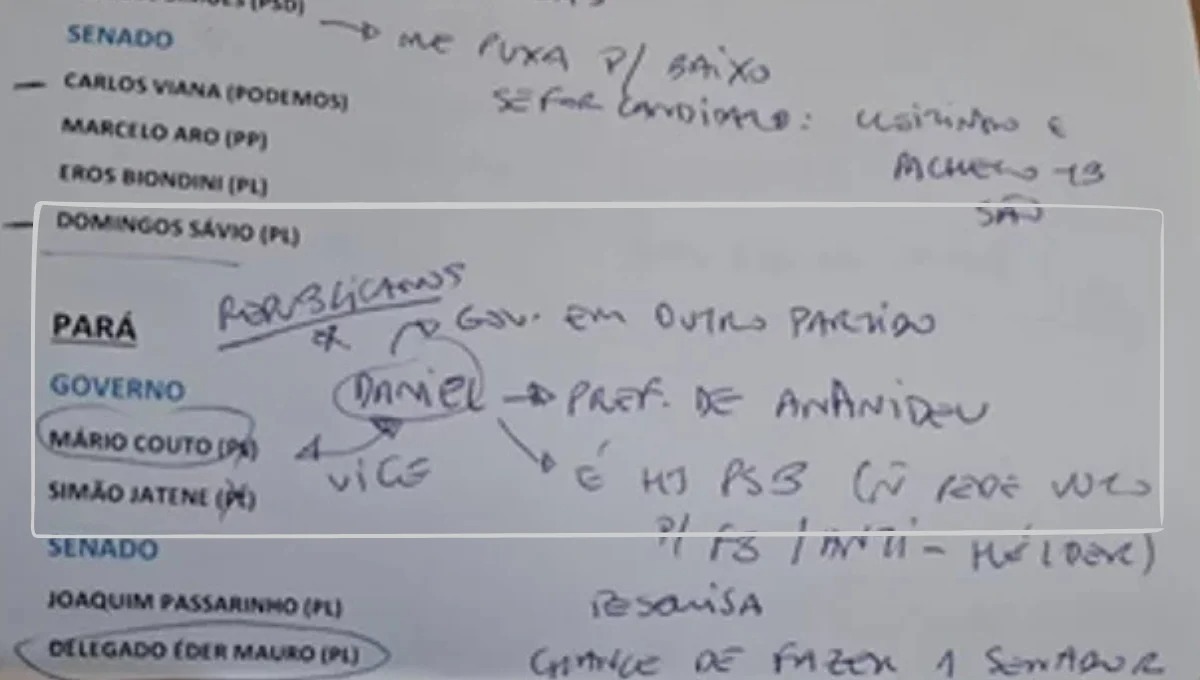 (PSD)
SENADO → ME PUXA P/ BAIXO
CARLOS VIANA (PODEMOS) SE FOR CANDIDATO:
MARCELO ARO (PP)
EROS BIONDINI (PL)
SÃO
DOMINGOS SÁVIO (PL)
REPUBLICANOS
PARÁ GOV. EM OUTRO PARTIDO
GOVERNO DANIEL → PREF. DE ANANIDEU
MÁRIO COUTO
VICE É HJ PSB (Ñ PEDE VOTO
SIMÃO JATENE
SENADO P/ FB / ANTI-HÉLDER)
JOAQUIM PASSARINHO (PL) PESQUISA
DELEGADO ÉDER MAURO (PL) CHANCE DE FAZER 1 SENADOR